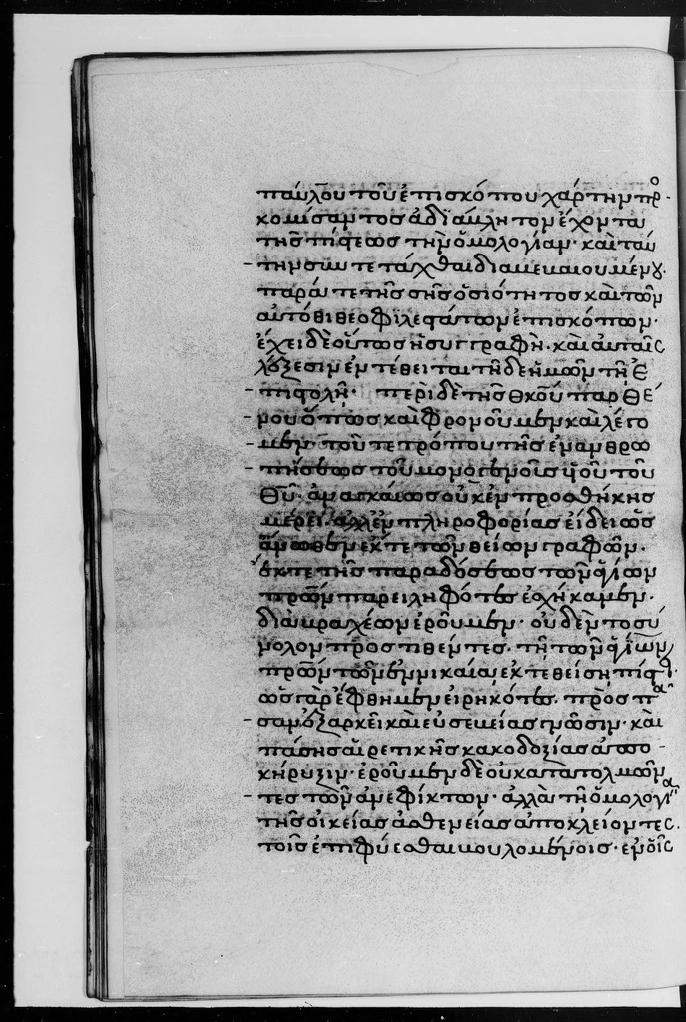 παύλου τοῦ ἐπισκόπου χάρτην προ
κομίσαντος ἀδιάβλητον ἔχοντα
τῆς πίστεως τὴν ὁμολογίαν· καὶ ταύ
την συντετάχθαι διαβεβαιουμένου
παρά τε τῆς σῆς ὁσιότητος καὶ τῶν
αὐτόθι θεοφιλεστάτων ἐπισκόπων·
ἔχει δὲ οὕτως ἡ συγγραφὴ· καὶ αὐταῖς
λέξεσιν ἐντέθειται τῆδε ἡμῶν τῆ ἐ
πιστολῆ· περὶ δὲ τῆς θκου παρθέ
νου ὅπως καὶ φρονοῦμεν καὶ λέγο
μεν· τοῦ τε τρόπου τῆς ἐνανθρω
πήσεως τοῦ μονογενοῦς υἱοῦ τοῦ
θυ· ἀναγκαίως οὐκ ἐν προσθήκης
μέρει ἀλλ' ἐν πληροφορίας εἴδει ὡς
ἄνωθεν ἔκ τε τῶν θείων γραφῶν·
ἔκ τε τῆς παραδόσεως τῶν ἁγίων
πρων παρειληφότες ἐσχήκαμεν·
διὰ βραχέων ἐροῦμεν· οὐδὲν τὸ σύ
νολον προστιθέντες· τῆ τῶν ἁγίων
πρων τῶν ἐν νικαία ἐκτεθείση πίστ
ὡς γὰρ ἔφθημεν εἰρηκότες· πρὸς πα
σαν ἐξαρκεῖ καὶ εὐσεβείας γνῶσιν· καὶ
πάσης αἱρετικῆς κακοδοξίας ἀπο
κήρυξιν· ἐροῦμεν δὲ οὐ κατατολμῶν
τες τῶν ἀνεφίκτων· ἀλλὰ τῆ ὁμολογία
τῆς οἰκείας ἀσθενείας ἀποκλείοντες
τοῖς ἐπιφύεσθαι βουλομένοις· ἐν οἷς